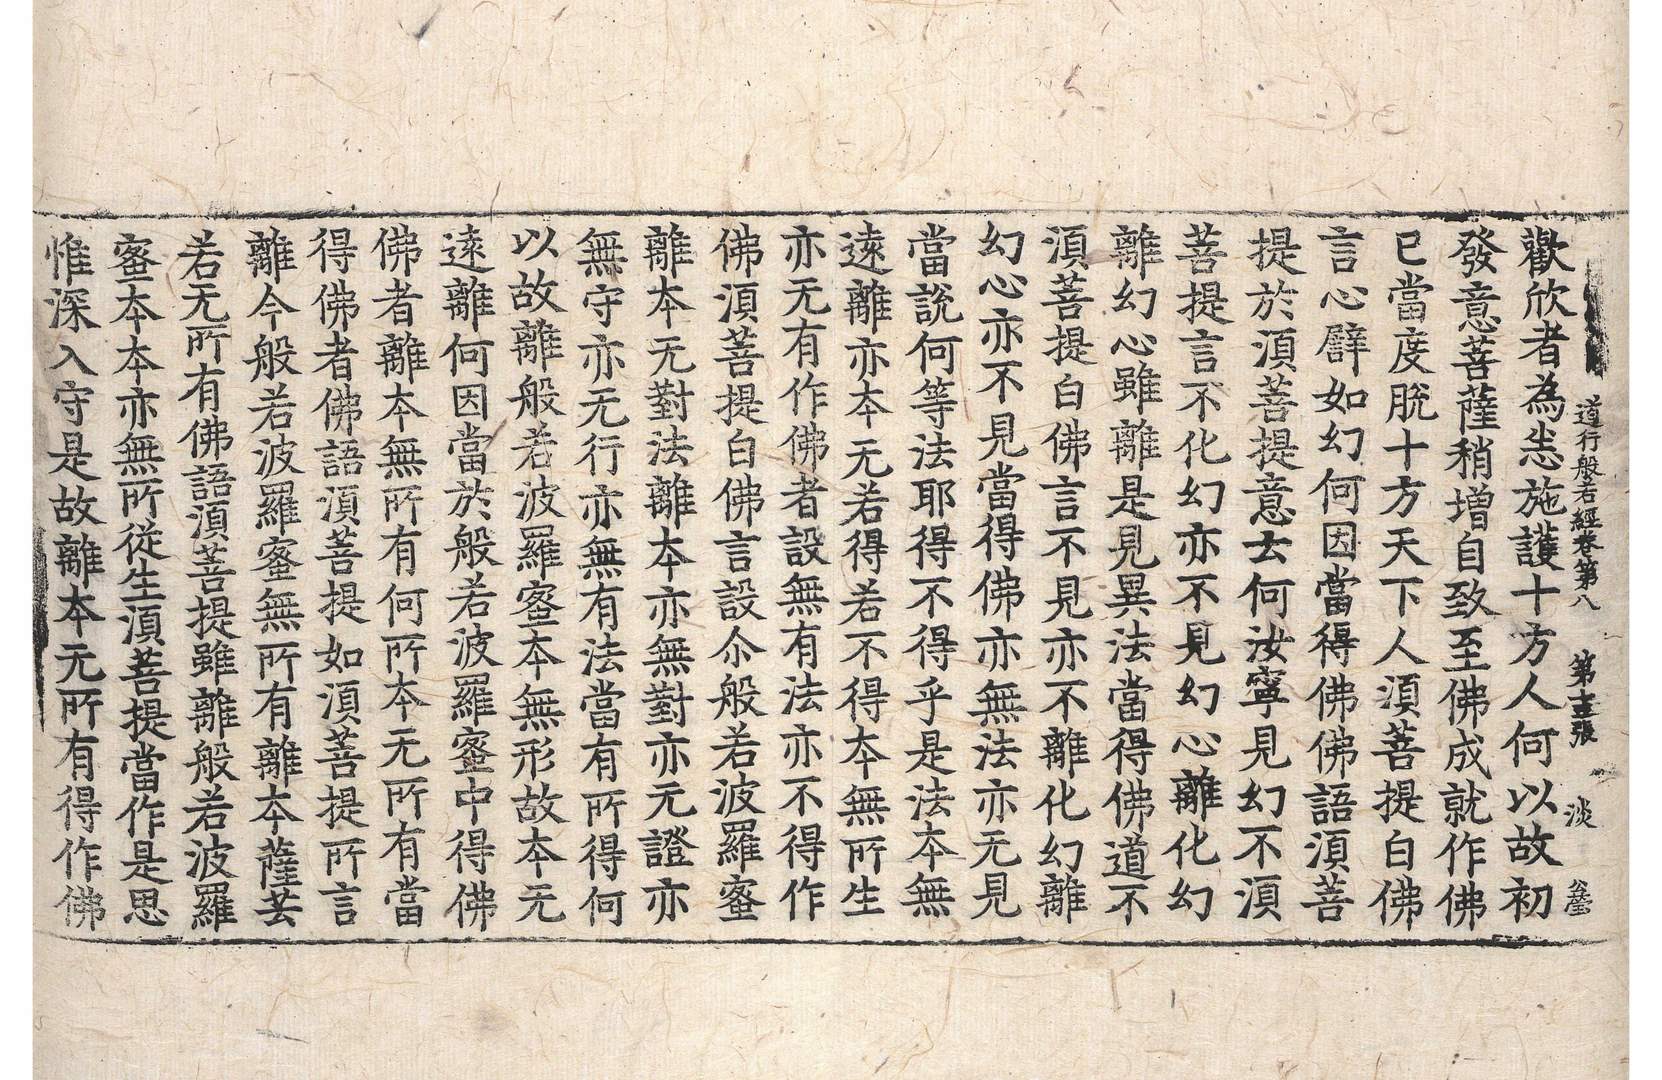 道行般若經卷第八　第十三張　淡
歡欣者為悉施護十方人何以故初
發意菩薩稍增自致至佛成就作佛
已當度脫十方天下人須菩提白佛
言心譬如幻何因當得佛佛語須菩
提於須菩提意云何汝寧見幻不須
菩提言不化幻亦不見幻心離化幻
離幻心雖離是見異法當得佛道不
須菩提白佛言不見亦不離化幻離
幻心亦不見當得佛亦無法亦无見
當說何等法耶得不得乎是法本無
遠離亦本无若得若不得本無所生
亦无有作佛者設無有法亦不得作
佛須菩提白佛言設尒般若波羅蜜
離本无對法離本亦無對亦无證亦
無守亦无行亦無有法當有所得何
以故離般若波羅蜜本無形故本无
遠離何因當於般若波羅蜜中得佛
佛者離本無所有何所本无所有當
得佛者佛語須菩提如須菩提所言
離今般若波羅蜜無所有離本薩芸
若无所有佛語須菩提雖離般若波羅
蜜本本亦無所從生須菩提當作是思
惟深入守是故離本无所有得作佛